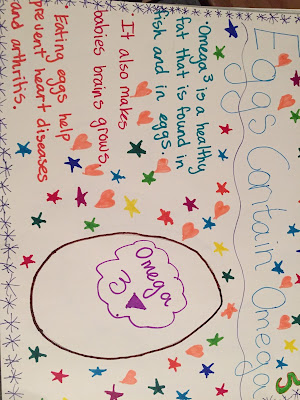 Eggs Contain Omega
3
• Omega 3 is a healthy
fat that is found in
fish and in eggs.
• It also makes
babies brains grows,
• Eating eggs help
prevent heart diseases
and arthritis.
Omega
3